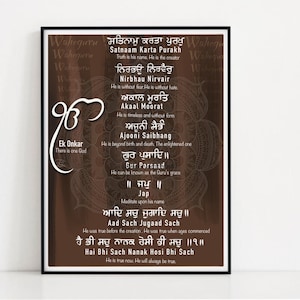 ਸਤਿਨਾਮੁ ਕਰਤਾ ਪੁਰਖੁ
Satnaam Karta Purakh
Truth is his name, He is the creator
ਨਿਰਭਉ ਨਿਰਵੈਰੁ
Nirbhau Nirvair
He is without fear, He is without hate
ਅਕਾਲ ਮੂਰਤਿ
Akaal Moorat
He is timeless and without form
ਅਜੂਨੀ ਸੈਭੰ
Ajooni Saibhang
He is beyond birth and death, The enlightened one
ੴ
Ek Onkar
There is one God
ਗੁਰ ਪ੍ਰਸਾਦਿ॥
Gur Parsaad
He can be known as the Guru's grace
॥ ਜਪੁ ॥
Jap
Meditate upon his name
ਆਦਿ ਸਚੁ ਜੁਗਾਦਿ ਸਚੁ॥
Aad Sach Jugaad Sach
He was true before the creation, He was true when ages commenced
ਹੈ ਭੀ ਸਚੁ ਨਾਨਕ ਹੋਸੀ ਭੀ ਸਚੁ ॥੧॥
Hai Bhi Sach Nanak Hosi Bhi Sach
He is true now, He will always be true.